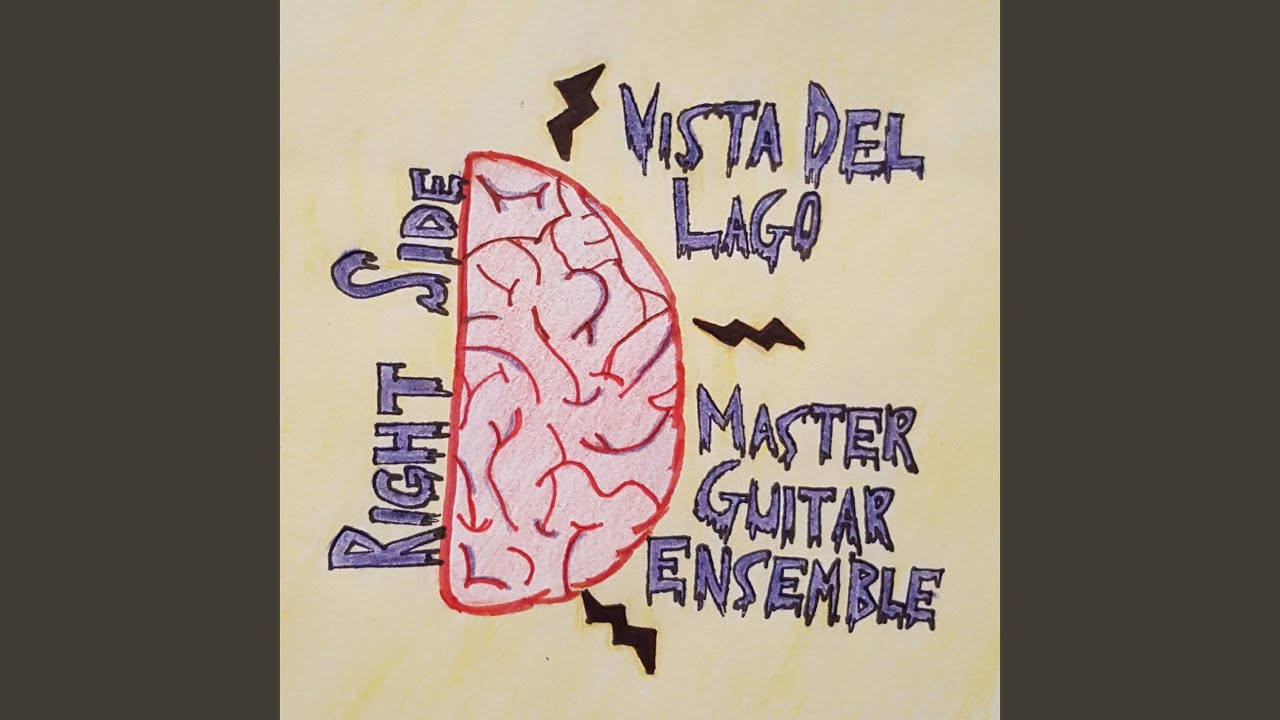 RIGHT SIDE
VISTA DEL
LAGO
MASTER
GUITAR
ENSEMBLE